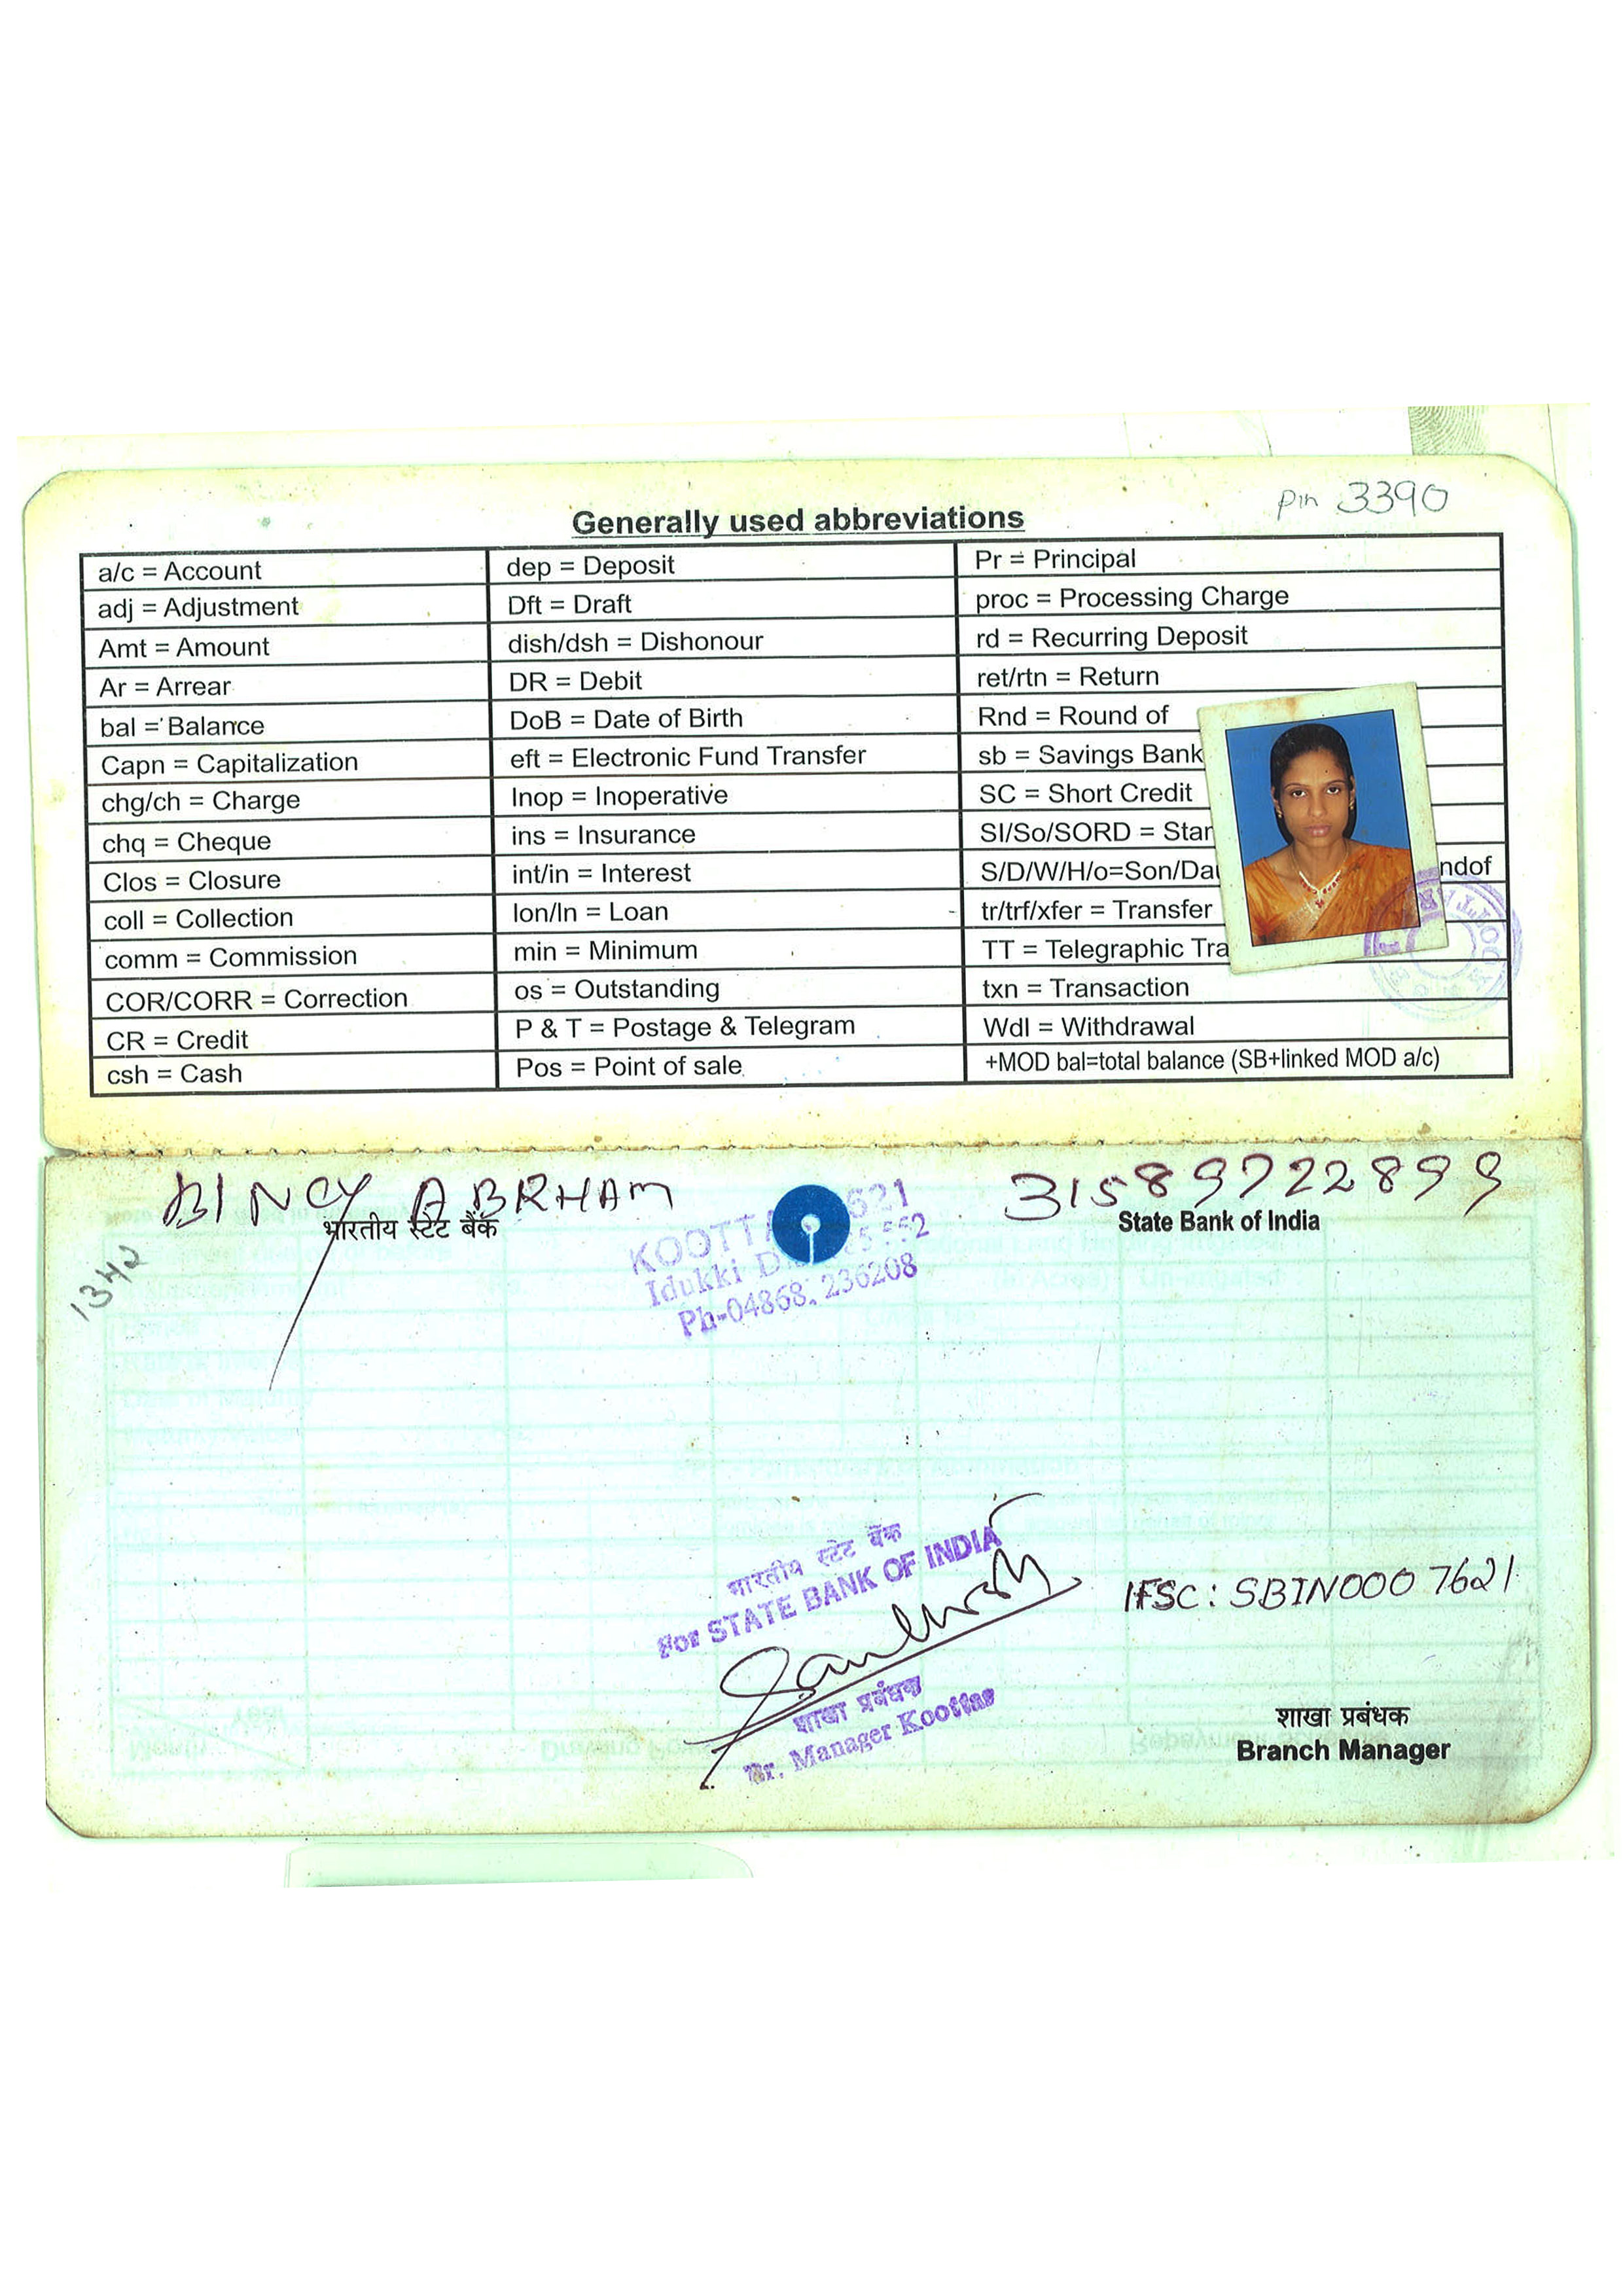 pin 3390
Generally used abbreviations
a/c = Account dep = Deposit Pr = Principal
adj = Adjustment Dft = Draft proc = Processing Charge
Amt = Amount dish/dsh = Dishonour rd = Recurring Deposit
Ar = Arrear DR = Debit ret/rtn = Return
bal = Balance DoB = Date of Birth Rnd = Round of
Capn = Capitalization eft = Electronic Fund Transfer sb = Savings Bank
chg/ch = Charge Inop = Inoperative SC = Short Credit
chq = Cheque ins = Insurance SI/So/SORD =
Clos = Closure int/in = Interest S/D/W/H/o=Son/
coll = Collection lon/ln = Loan tr/trf/xfer = Transfer
comm = Commission min = Minimum TT = Telegraphic
COR/CORR = Correction os = Outstanding txn = Transaction
CR = Credit P & T = Postage & Telegram Wdl = Withdrawal
csh = Cash Pos = Point of sale +MOD bal=total balance (SB+linked MOD a/c)
BINCY ABRHAM 31589722899
भारतीय स्टेट बैंक State Bank of India
1342
Idukki
Ph-04868. 236208
भारतीय स्टेट बैंक
For STATE BANK OF INDIA
IFSC: SBIN0007621
शाखा प्रबंधक
Br. Manager Koottar
शाखा प्रबंधक
Branch Manager